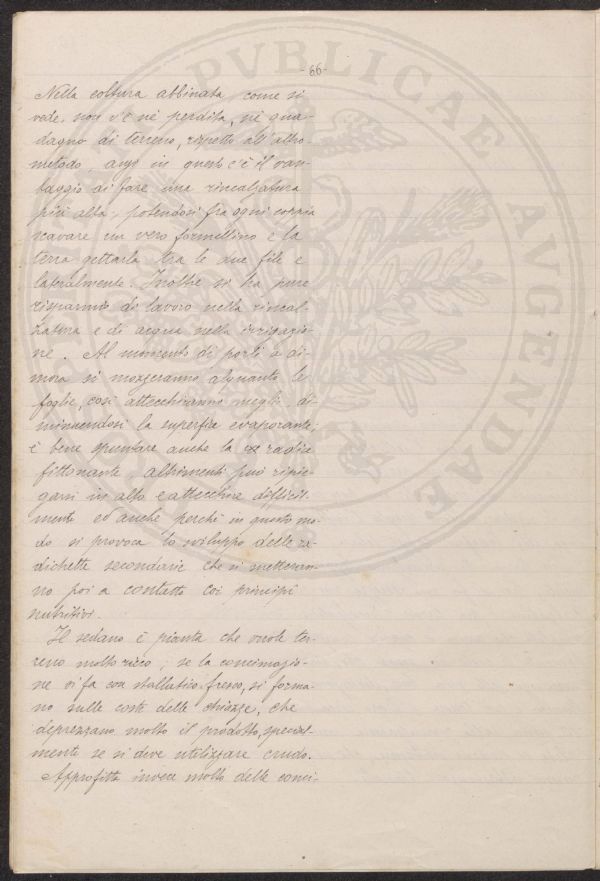 -66-
Nella coltura abbinata come si
vede. non v'è nè perdita, nè gua-
dagno di terreno, rispetto all'altro
metodo, anzi in questo c'è il van-
taggio di fare una rincalzatura
più alta, potendosi fra ogni coppia
scavare un vero formellino e la
terra gettarla tra le due file e
lateralmente. Inoltre si ha pure
risparmio di lavoro nella rincal-
zatura e di acqua nella irrigazio-
ne. Al momento di porli a di-
mora si mozzeranno alquanto le
foglie, così attecchiranno meglio di-
minuendosi la superfice evaporante;
è bene spuntare anche la radice
fittonante altrimenti può ripie-
garsi in alto e attecchire difficil-
mente ed anche perchè in questo mo-
do si provoca lo sviluppo delle ra-
dichette secondarie che si metteran-
no poi a contatto coi principi
nutritivi.
Il sedano è pianta che vuole ter-
reno molto ricco; se la concimazio-
ne si fa con stallatico fresco, si forma-
no sulle coste delle chiazze, che
deprezzano molto il prodotto, special-
mente se si deve utilizzare crudo.
Approfitta invece molto delle conci-
PVBLICAE
AVGENDAE